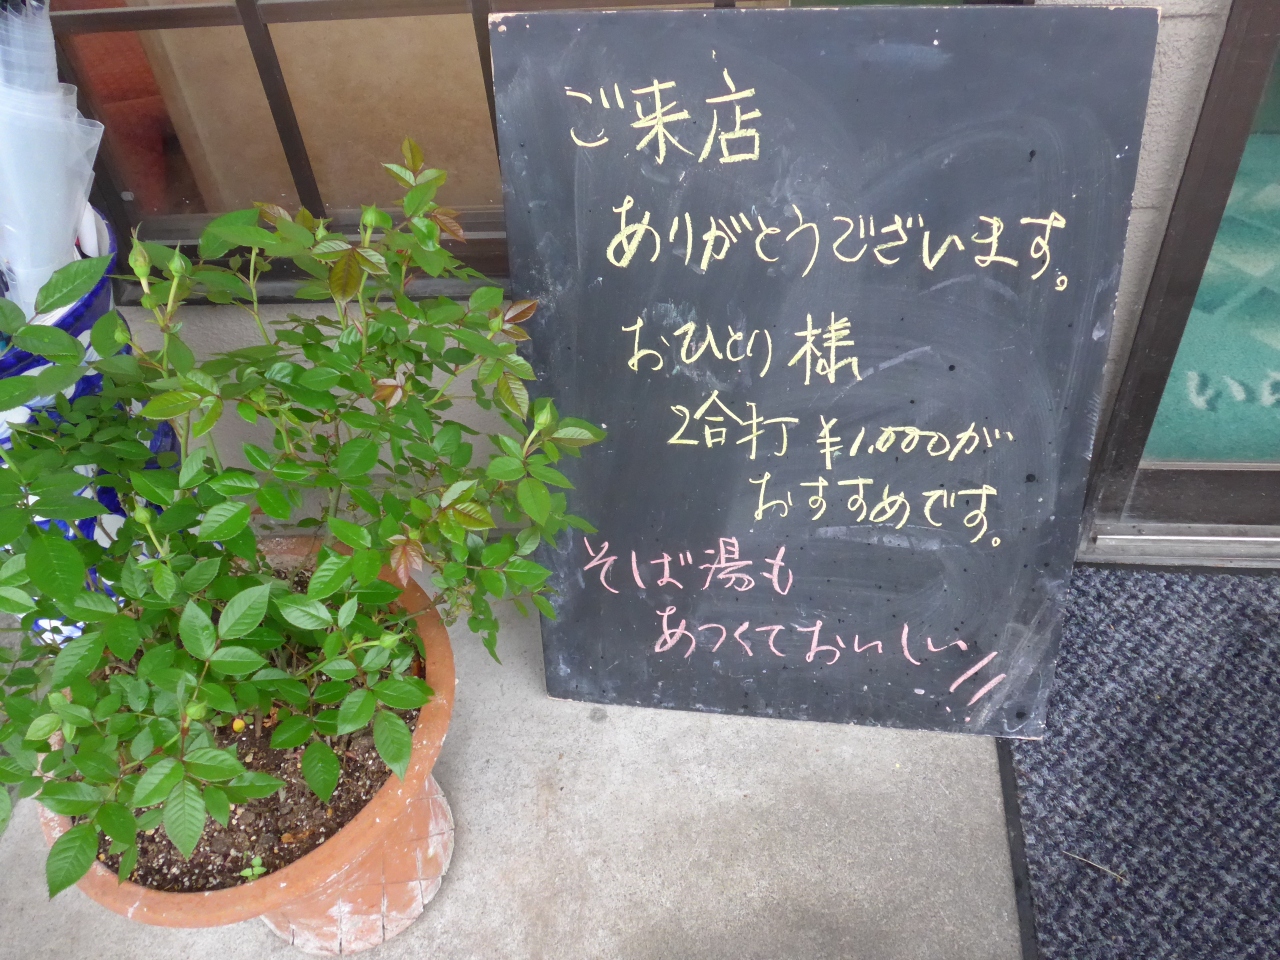 ご来店
ありがとうございます。
おひとり様
2合打 ¥1.000が
おすすめです。
そば湯も
あつくておいしい